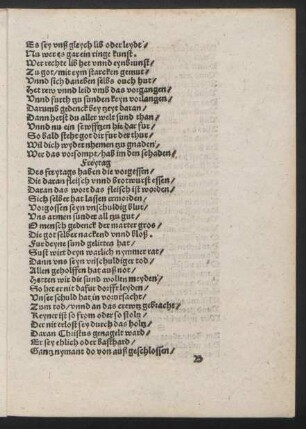 Es sey vnß gleych lib oder leyde/
Nu wer es gar ein ringe kunst.
Wer rechte lib het vnnd eynbrunst/
Zu got/mit eym starcken gemut/
Vnnd sich daneben selbs ouch hut/
Het rew vnnd leid vms das vorgangen/
Vnnd furth zu sunden keyn vorlangen/
Darumb gedenck bey zeyt daran/
Dann hetst du aller welt sund than/
Vnnd nu ein sewfftzen hie har fur/
So bald steht got dir fur der thur/
Wil dich wyder nhemen zu gnaden/
Wer das vorsompt/hab im den schaden/
Freytag
Des freytags haben die vorgessen/
Die daran fleisch vnnd brotwurst essen/
Daran das wort das fleisch ist worden/
Sich selber hat lassen ermorden/
Vorgossen seyn vnschuldig blut/
Vns armen sunder all zu gut/
O mensch gedenck der marter gros/
Die got selber nackend vnnd blos/
Fur deyne sund gelitten hat/
Sust wirt deyn warlich nymmer rat/
Dann vns seyn vnschuldiger tod/
Allen geholffen hat auß not/
Hetten wir die sund wollen meyden/
So het er nit dafur dorfft leyden/
Vnser schuld hat in vorursacht/
Zum tod/vnnd an das crewtz gebracht/
Keyner ist so from oder so stoltz/
Der nit erlost sey durch das holtz/
Daran Christus genagelt ward/
Er sey ehlich oder basthard/
Gantz nymant do von auß geschlossen/
B